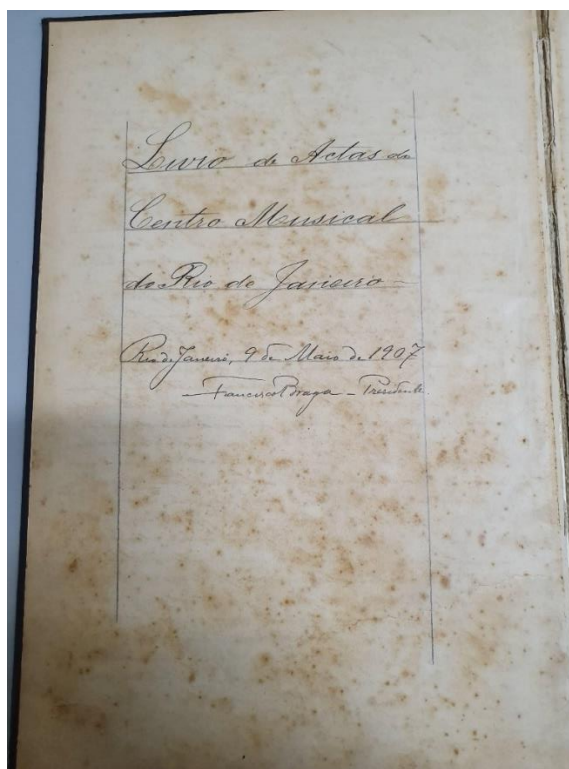 Livro de Actas do
Centro Musical
do Rio de Janeiro-
Rio de Janeiro, 9 de Maio de 1907
- Francisco Braga - Presidente.